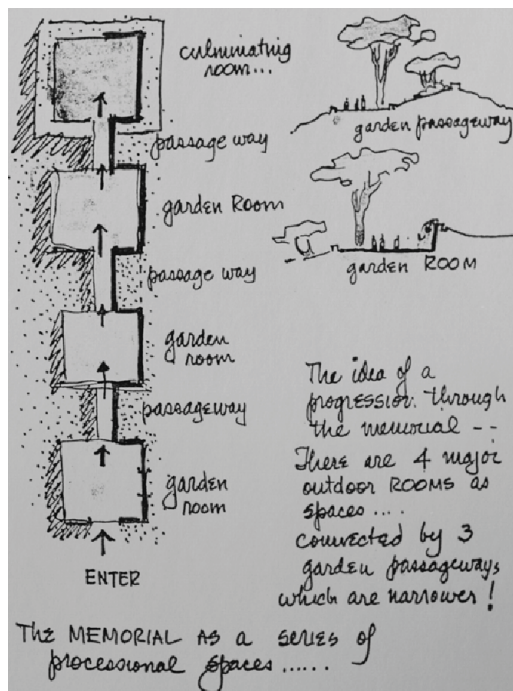 culminating
room...
passage way
garden passageway
garden Room
garden ROOM
passage way
garden
room
passageway
garden
room
ENTER
The idea of a
progression through
the memorial --
There are 4 major
outdoor ROOMS as
spaces....
connected by 3
garden passageways
which are narrower!
The MEMORIAL AS a SERIES of
processional spaces......